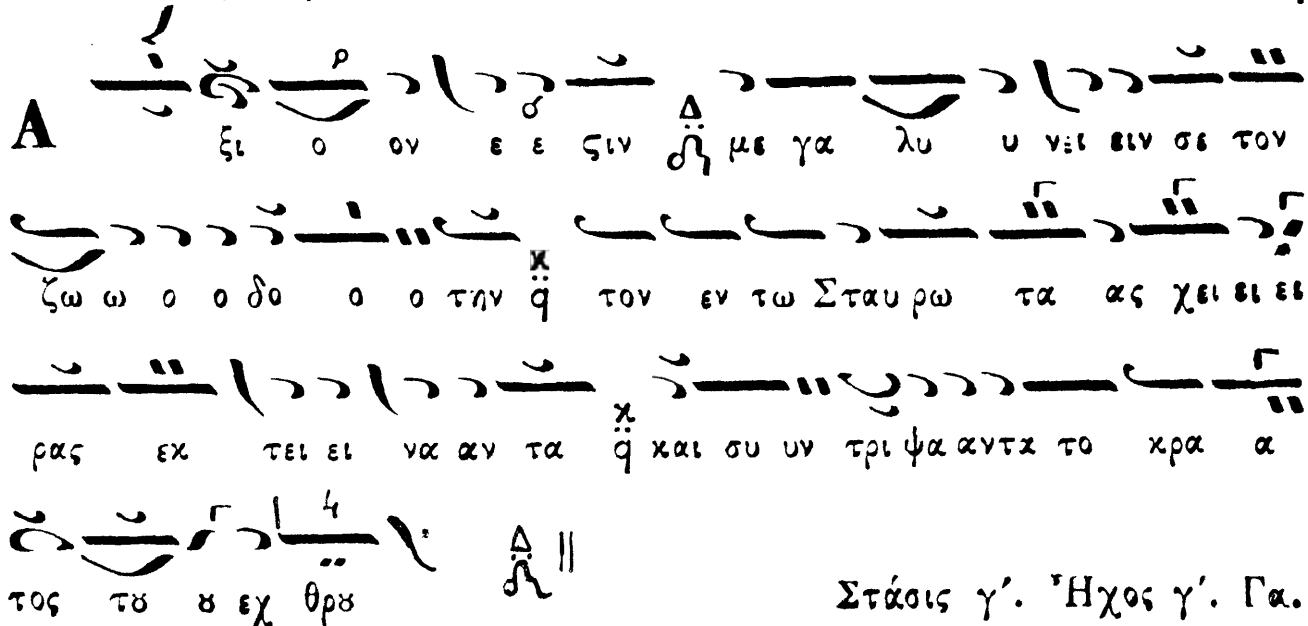 Α ξι ο ον ε ε ϛιν Δ με γα λυ υ νει ειν σε τον
ζω ω ο ο δο ο ο την κ q τον εν τω Σταυ ρω τα ας χει ει ει
ρας εκ τει ει να αν τα κ q και συ υν τρι ψα αντα το κρα α
τος τȣ ȣ εχ θρȣ Δ
Στάσις γ΄. Ἦχος γ΄. Γα.